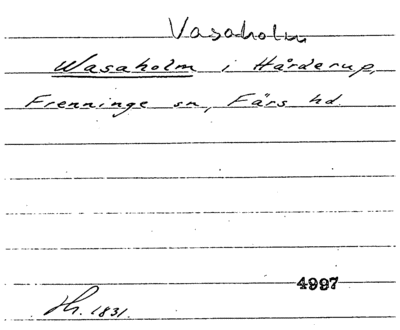 Vasaholm
Wasaholm i Hårderup,
Frenninge sn, Färs hd.
4997
Hh. 1831.